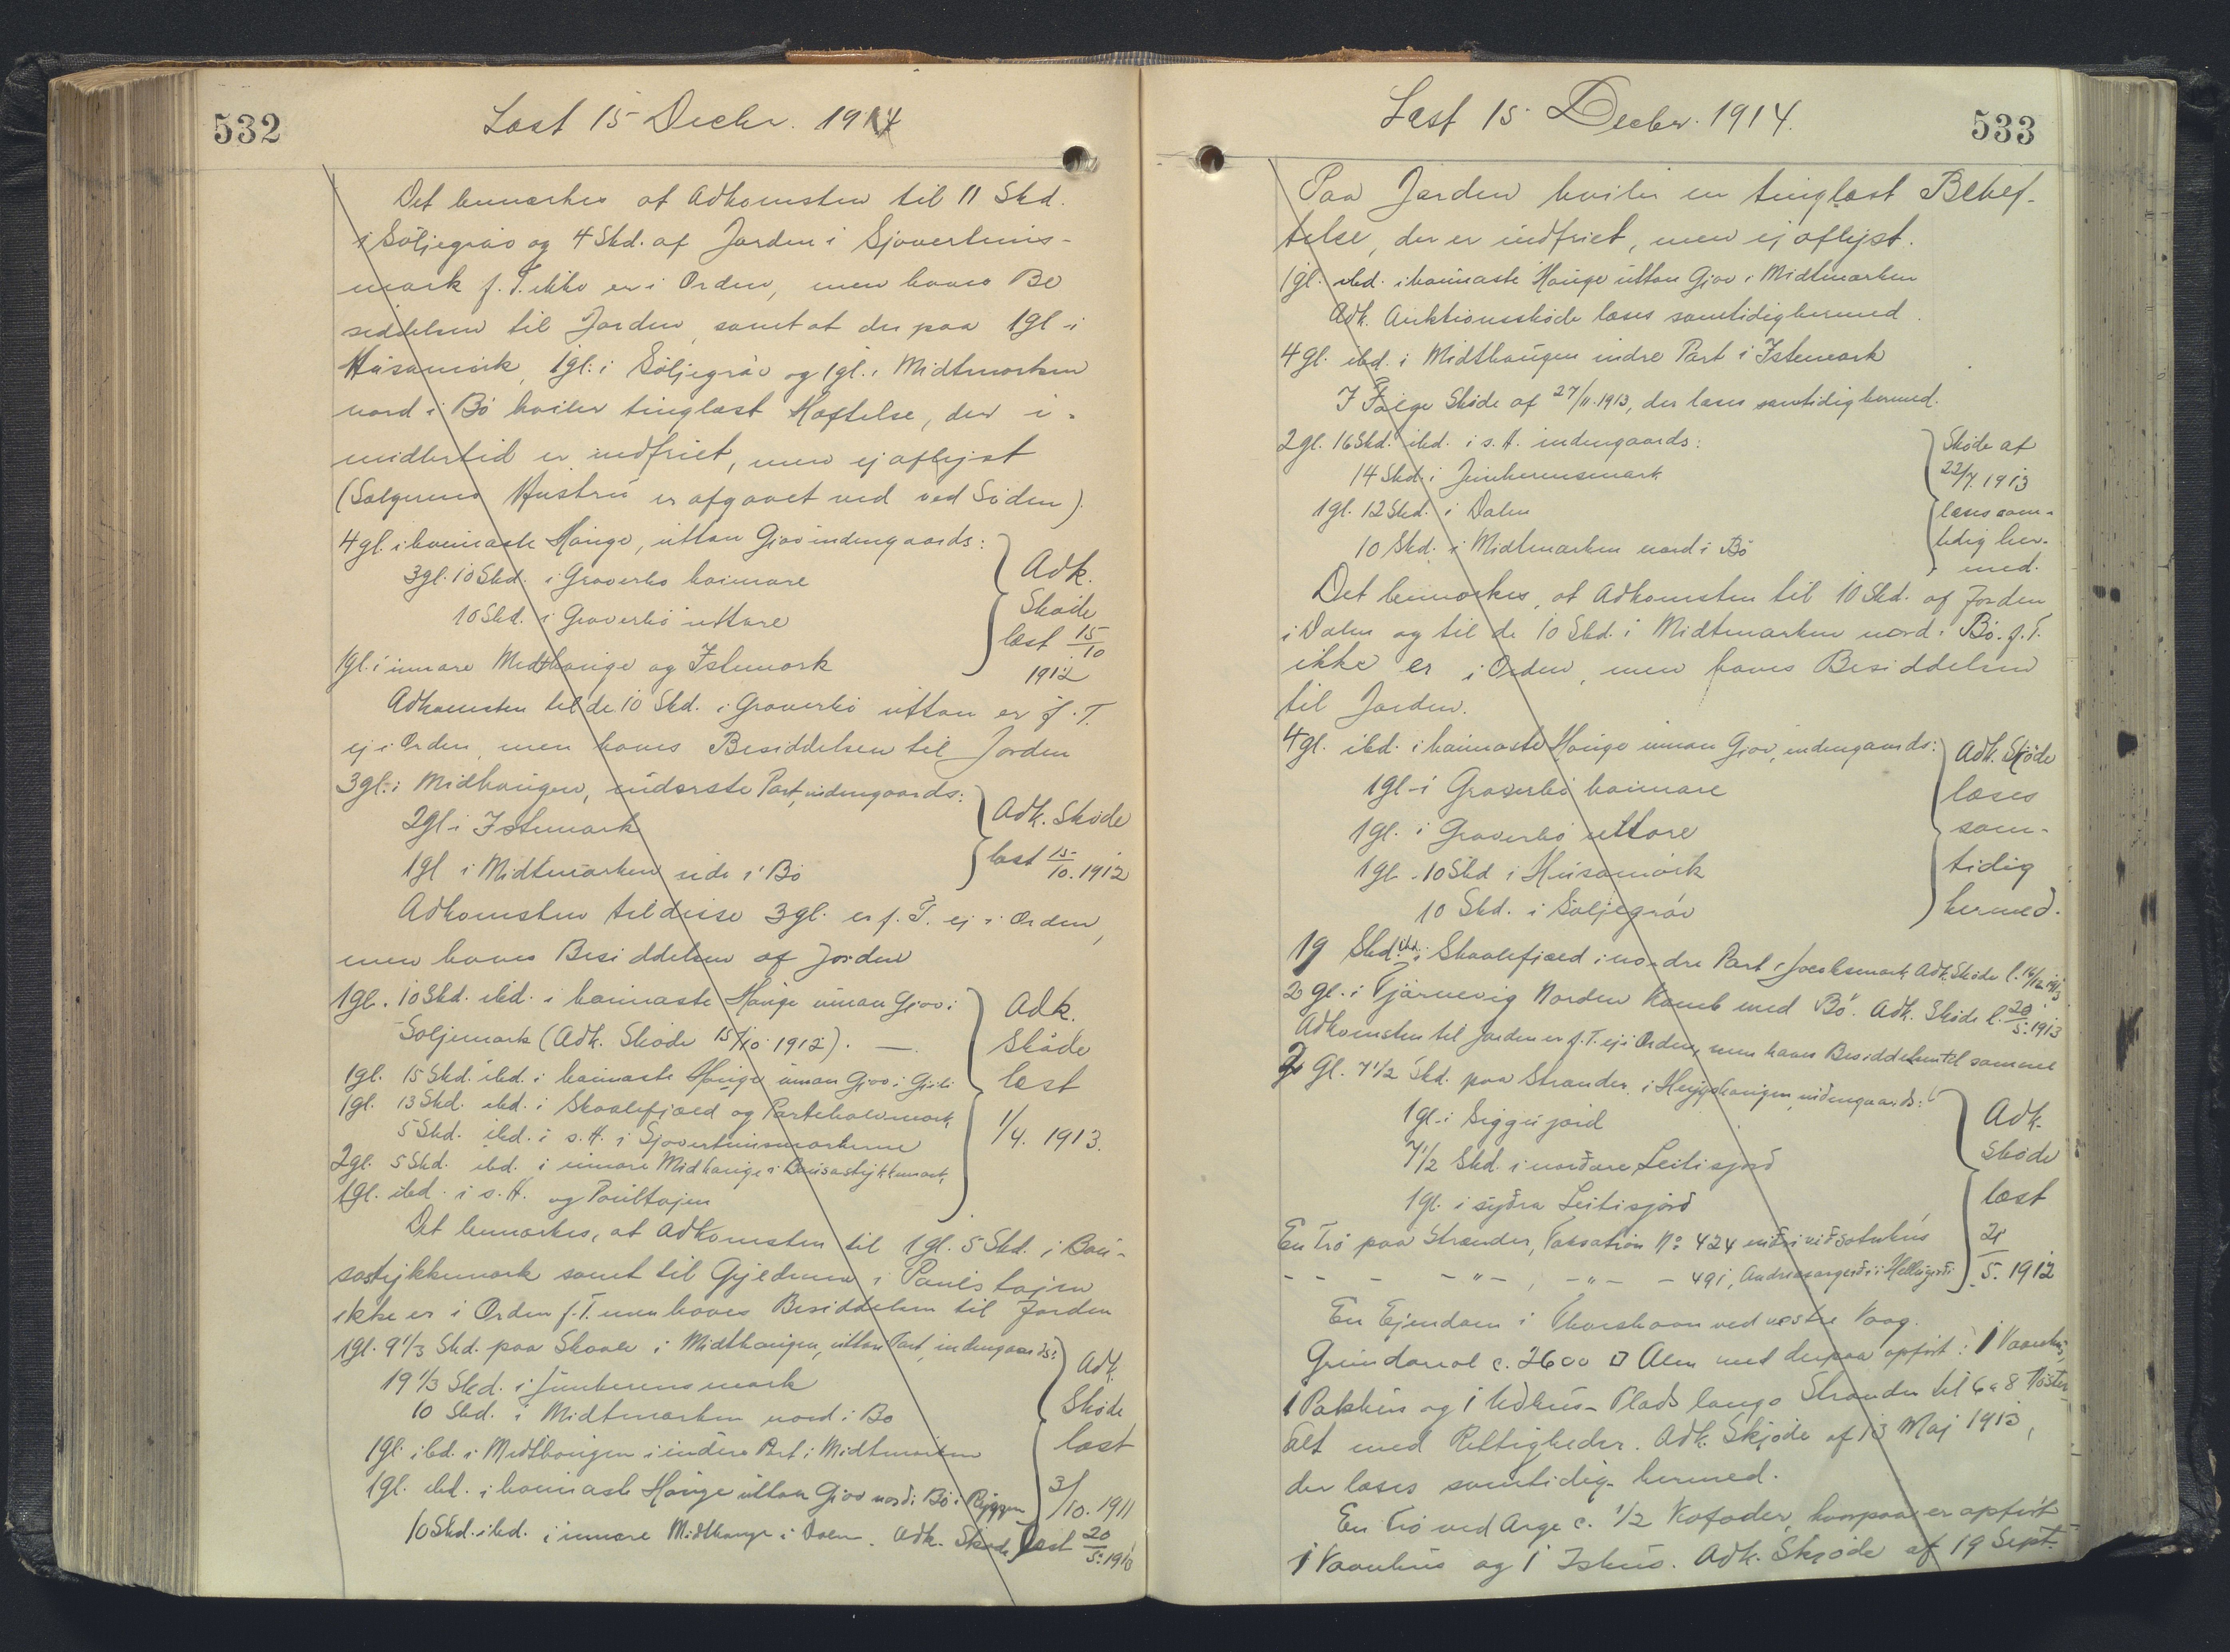 532
Læst 15 Decbr. 1914
Det bemærkes at Adkomsten til 11 Skd.
i Söljegráv og 4 Skd. af Jorden i Sjovertuns-
mark f. T. ikke er i Orden, men haves Be
siddelsen til Jorden, samt at der paa 1 gl i
Húsamörk, 1 gl. i Söljegráv og 1 gl. i Midtmarken
nord i Bö hviler tinglæst Hæftelse, der i-
midlertid er indfriet, men ej aflyst
(Sælgerens Hustru er afgaaet ved Döden).
4 gl. i heimaste Hauge, uttan Gjov indengaards:
3 gl. 10 Skd. i Groverbö haimare
10 Skd. i Groverbö uttare
1 gl. i innare Midthauge og Istemark
Adk.
Sköde
læst 15/10
1912
Adkomsten til de 10 Skd. i Groverbö uttan er f. T.
ej i Orden, men haves Besiddelsen til Jorden
3 gl. i Midhaugen, inderste Part, indengaards:
2 gl i Istemark
1 gl i Midtmarken nide i Bö
Adk. Sköde
læst 15/10. 1912
Adkomsten til disse 3 gl. er f. T. ej i Orden,
men haves Besiddelsen af Jorden
1 gl. 10 Skd. ibd. i haimaste Hauge innan Gjov i
Soljemark (Adk. Sköde 15/10 1912). —
1 gl. 15 Skd. ibd. i haimaste Hauge innan Gjov i
1 gl. 13 Skd. ibd. i Skaalefjæld og
5 Skd. ibd. i s. H. i Sjovertunsmarkerne
2 gl. 5 Skd. ibd. i innare Midhauge i Bousastykkemark
1 gl. ibd. i s. H. og
Adk.
Sköde
læst
1/4. 1913.
Det bemærkes, at Adkomsten til 1 gl. 5 Skd. i Bou-
sastykkemark samt til Gyldenen i
ikke er i Orden f. T. men haves Besiddelsen til Jorden
1 gl. 9 1/3 Skd. paa Skaale i Midthaugen, uttan Part, indengaards:
19 1/3 Skd. i Junkerensmark
10 Skd. i Midtmarken nord i Bö
1 gl. ibd. i Midthaugen i indere Part i Midtmarken
1 gl. ibd. i haimaste Hauge uttan Gjov nord i Bö i Ryggen
Adk.
Sköde
læst
3/10. 1911
10 Skd. ibd. i innare Midthauge i Dalen. Adk. Sköde læst 20/5. 1913
533
Læst 15 Decbr. 1914.
Paa Jorden hviler en tinglæst Behef-
telse, der er indfriet, men ej aflyst.
1 gl. ibd. i haimaste Hauge uttan Gjov i Midtmarken
Adk. Auktionssköde læses samtidig hermed.
4 gl. ibd. i Midthaugen indre Part i Istemark
I Fölge Sköde af 27/11. 1913, der læses samtidig hermed.
2 gl. 16 Skd. ibd. i s. H. indengaards:
14 Skd. i Junkerensmark
1 gl. 12 Skd. i Dalen
10 Skd. i Midtmarken nord i Bö
Sköde af
22/7. 1913
læses sam-
tidig her-
med.
Det bemærkes, at Adkomsten til 10 Skd. af Jorden
i Dalen og til de 10 Skd. i Midtmarken nord i Bö. f. T.
ikke er i Orden, men haves Besiddelsen
til Jorden.
4 gl. ibd. i haimaste Hauge innan Gjov, indengaards:
1 gl i Groverbö haimare
1 gl. i Groverbö uttare
1 gl. 10 Skd i Húsamörk
10 Skd. i Söljegráv
Adk. Sköde
læses
sam-
tidig
hermed.
19 Skd. ibd. i Skaalefjæld i nordre Part i Adk. Sköde l.
2 gl. i Tjörnevig Norden med Bö. Adk. Sköde l. 20/5. 1913
Adkomsten til Jorden er f. T. ej i Orden, men haves Besiddelsen til samme
2 Gl. 7 1/2 Skd. paa Strander i indengaards:
1 gl i Siggujord
7 1/2 Skd. i nordare Leitisjord
1 gl. i sydra Leitisjord
En Trö paa Strander, Taxation No. 424
- - - - " - , - " - - 491,
Adk.
Sköde
læst
21/5. 1912
En Ejendom i Thorshavn ved vestre Vaag.
Grundareal c. 2600 □ Alen med derpaa opfört: 1 Vaanhus,
1 Pakhus og 1 Udhus - Plads langs Stranden til 6 a 8 Nöster
alt med Rettigheder. Adk. Skjöde af 13 Maj 1913,
der læses samtidig hermed.
En Trö ved Arge c. 1/2 Kofoder, hvorpaa er opfört
1 Vaanhus og 1 Ishus. Adk. Skjöde af 19 Sept.